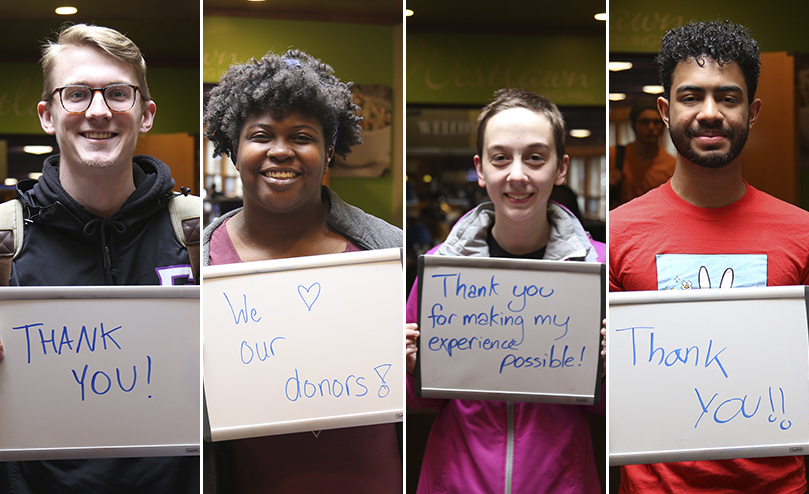 THANK
YOU!
We ♡
our
donors!
Thank you
for making my
experience
possible!
Thank
You!!